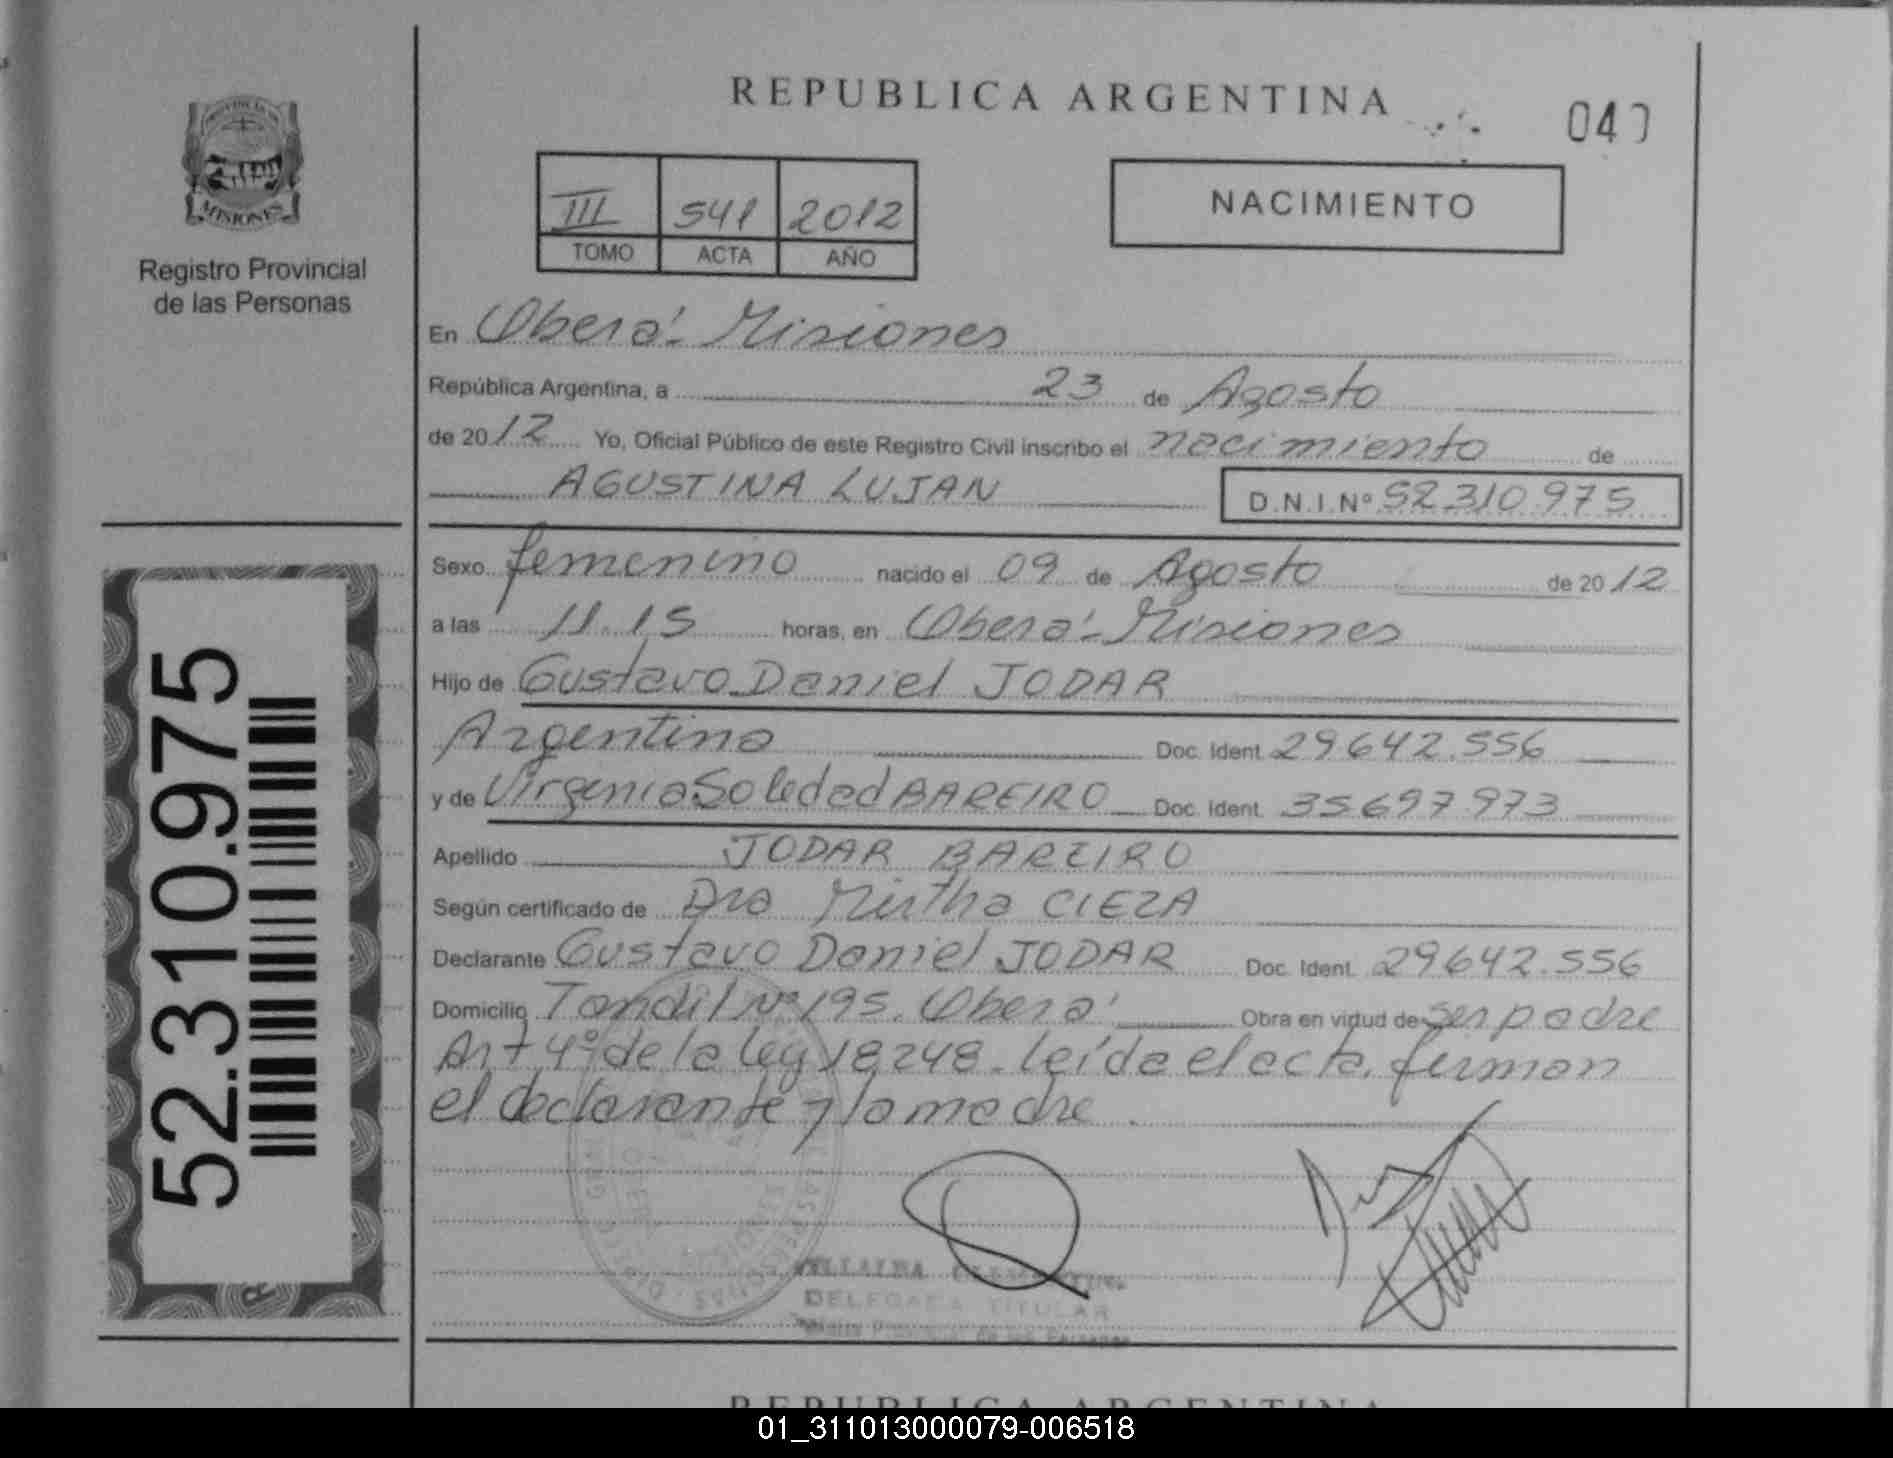 REPUBLICA ARGENTINA
040
PROVINCIA DE
MISIONES
Registro Provincial
de las Personas
III 541 2012
TOMO ACTA AÑO
NACIMIENTO
En Oberá - Misiones
República Argentina, a 23 de Agosto
de 2012 Yo, Oficial Público de este Registro Civil inscribo el nacimiento de
AGUSTINA LUJAN D.N.I.Nº 52.310.975
Sexo femenino nacido el 09 de Agosto de 2012
a las 11.15 horas, en Oberá - Misiones
Hijo de Gustavo Daniel JODAR
Argentino Doc. Ident. 29642.556
y de Virginia Soledad BAREIRO Doc. Ident. 35697973
Apellido JODAR BAREIRO
Según certificado de Dra Mirtha CIEZA
Declarante Gustavo Daniel JODAR Doc. Ident. 29642.556
Domicilio Tandil Nº 195. Oberá Obra en virtud de ser padre
Art 4º de la ley 18248. leída el acta, firman
el declarante y la madre.
52.310.975
VILLALBA
DELEGADA TITULAR
Provincial de las Personas
REPUBLICA ARGENTINA
01_311013000079-006518